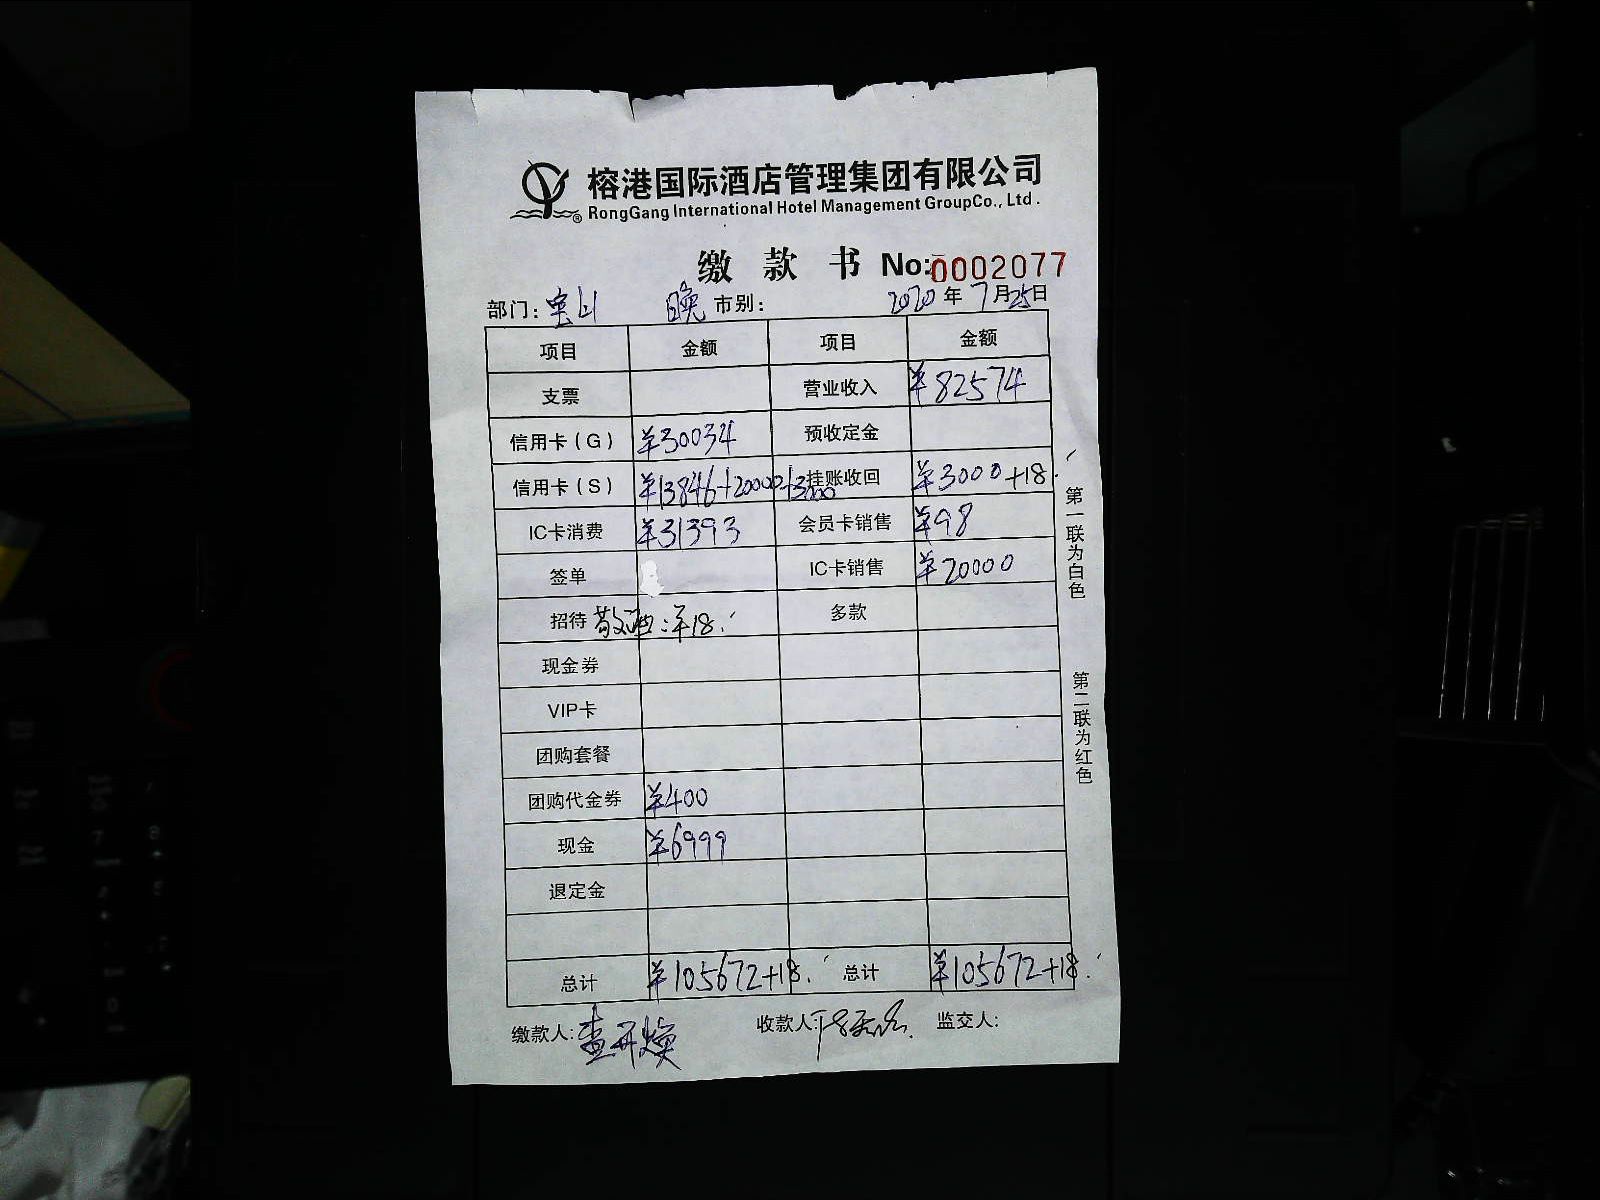 榕港国际酒店管理集团有限公司
RongGang International Hotel Management GroupCo., Ltd.
缴款书 No:0002077
部门: 宝山 晚 市别: 2020年7月25日
项目 金额 项目 金额
支票 营业收入 ¥82574
信用卡(G) ¥30034 预收定金
信用卡(S) ¥13846+20000+3000 挂账收回 ¥3000+18.
IC卡消费 ¥31393 会员卡销售 ¥98
签单 IC卡销售 ¥20000
招待 敬酒:¥18. 多款
现金券
VIP卡
团购套餐
团购代金券 ¥400
现金 ¥6999
退定金
总计 ¥105672+18. 总计 ¥105672+18.
缴款人: 查开焕 收款人: 监交人:
第一联为白色
第二联为红色